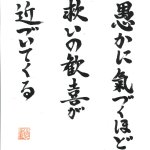 愚かに氣づくほど
救いの歓喜が
近づいてくる